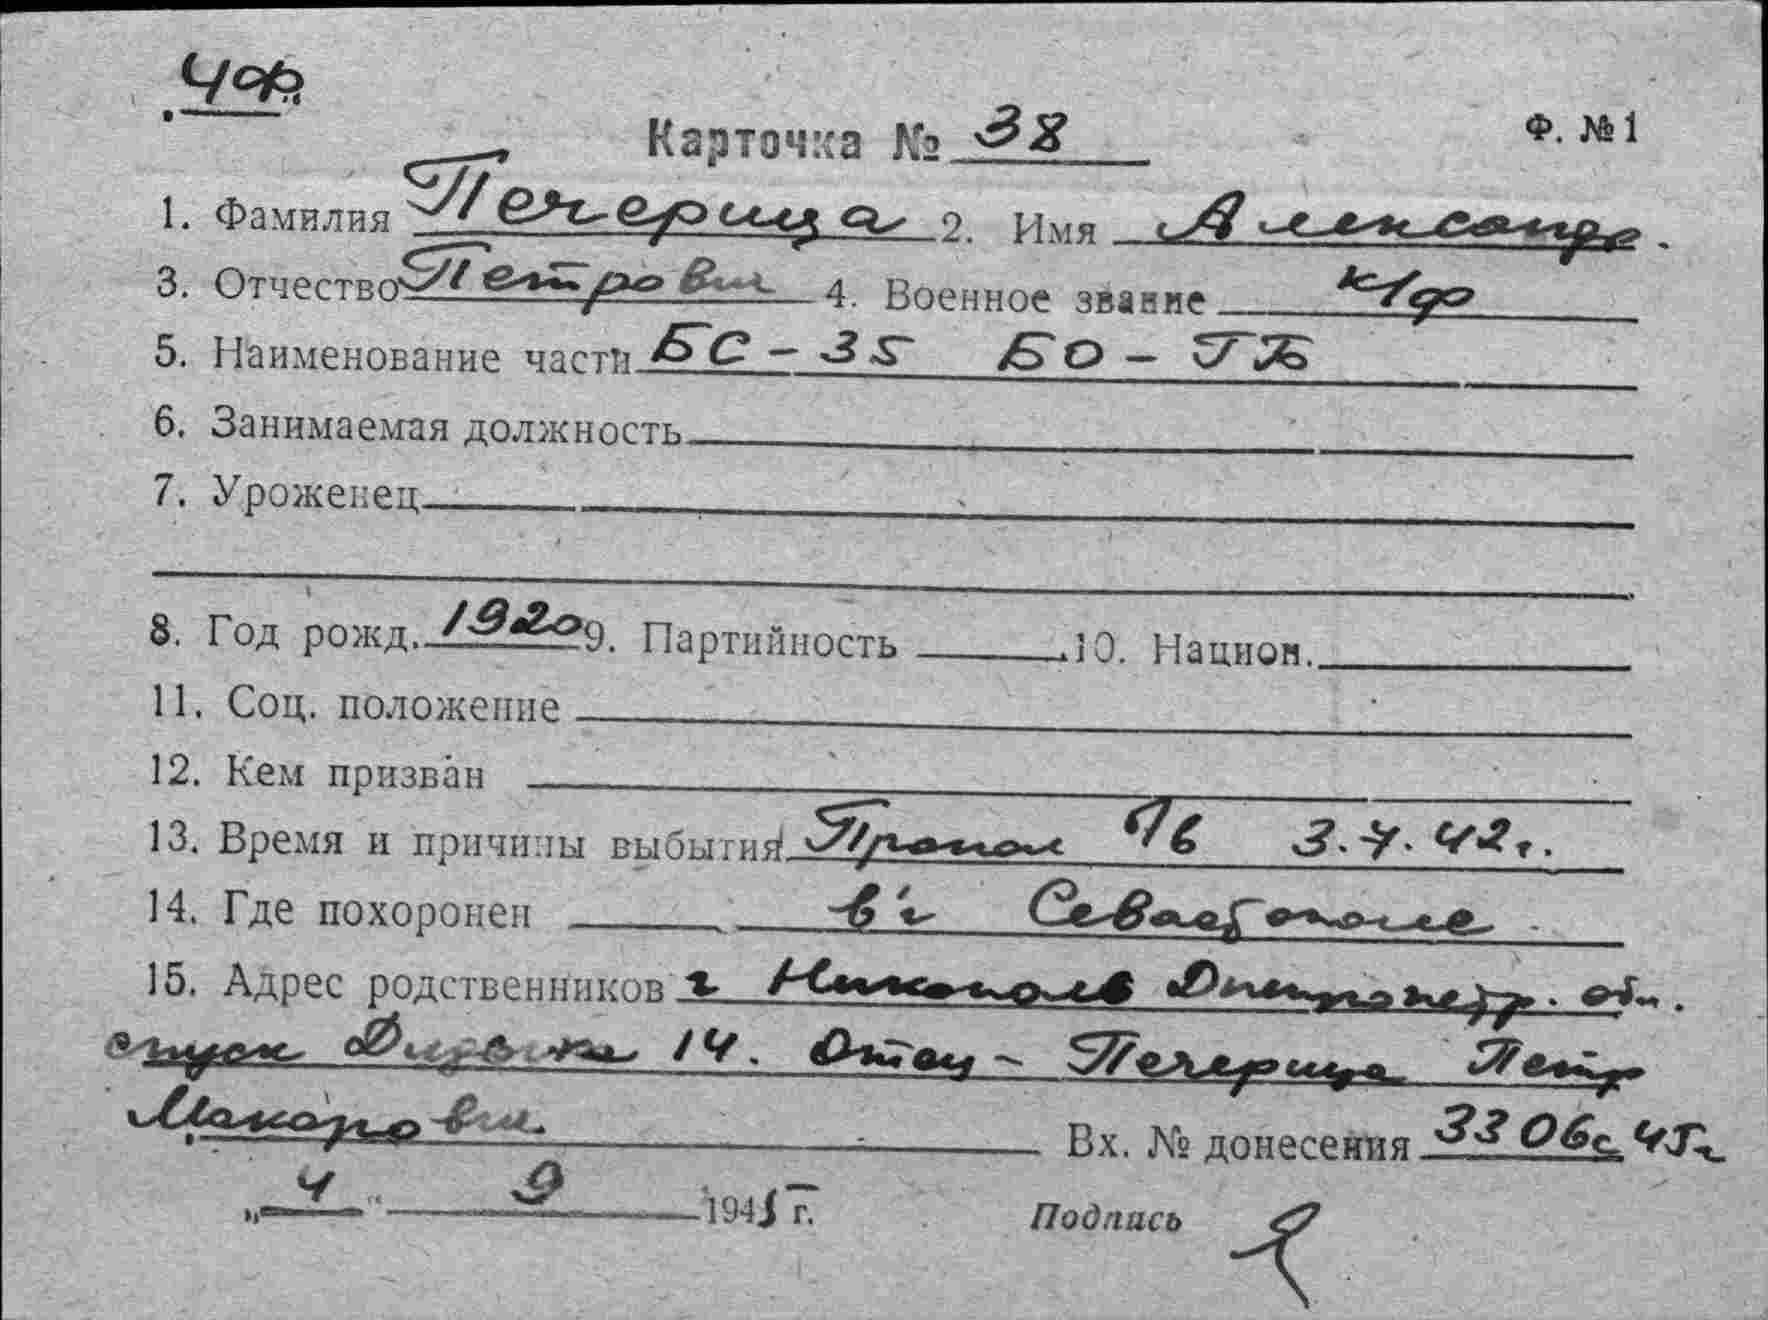 ЧФ
Карточка № 38 Ф. №1
1. Фамилия Печерица 2. Имя Александр.
3. Отчество Петрович 4. Военное звание к/ф
5. Наименование части БС-35 БО-ГБ
6. Занимаемая должность
7. Уроженец
8. Год рожд. 1920 9. Партийность 10. Национ.
11. Соц. положение
12. Кем призван
13. Время и причины выбытия Пропал б/в 3.7.42г.
14. Где похоронен в г Севастополе
15. Адрес родственников г Никополь Днепропетр. обл.
спуск 14. Отец - Печерица Петр
Макарович Вх. № донесения 3306с 45г
„4" 9 1945 г. Подпись